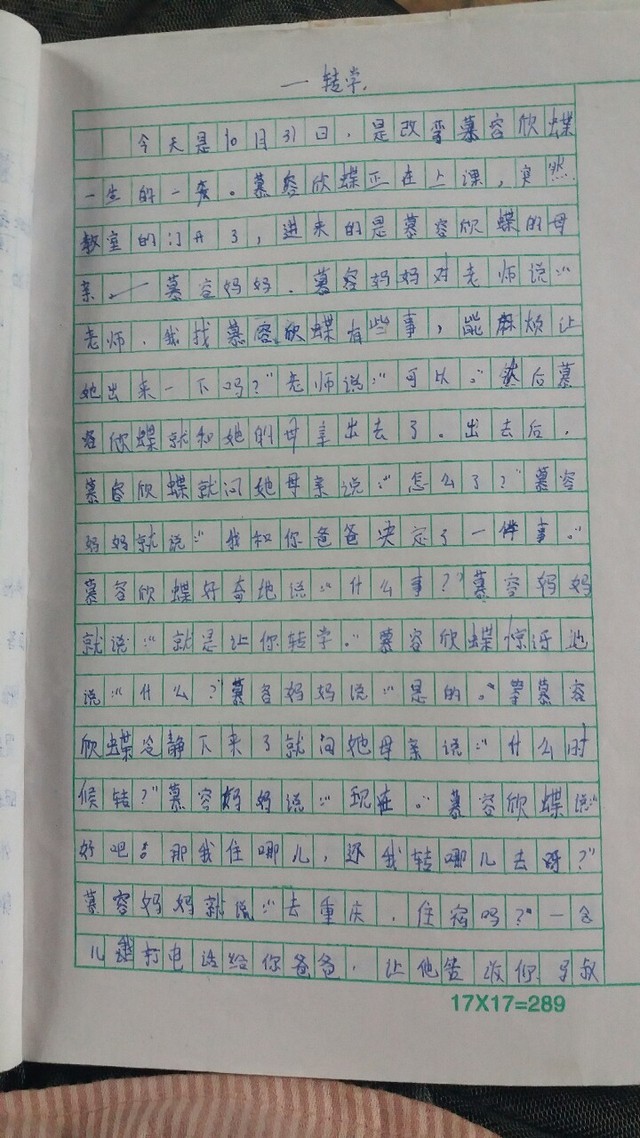 一 转学.
今天是10月31日，是改变慕容欣蝶
一生的一夜。慕容欣蝶正在上课，突然
教室的门开了，进来的是慕容欣蝶的母
亲—慕容妈妈.慕容妈妈对老师说:“
老师.我找慕容欣蝶有些事，能麻烦让
她出来一下吗?”老师说:“可以。”然后慕
容欣蝶就和她的母亲出去了。出去后.
慕容欣蝶就问她母亲说:“怎么了?”慕容
妈妈就说:“我和你爸爸决定了一件事。”
慕容欣蝶好奇地说:“什么事?”慕容妈妈
就说:“就是让你转学。”慕容欣蝶惊讶地
说:“什么?”慕容妈妈说:“是的。”等慕容
欣蝶冷静下来了就问她母亲说:“什么时
候转?”慕容妈妈说:“现在。”慕容欣蝶说:“
好吧!那我住哪儿，还我转哪儿去呀?”
慕容妈妈就说:“去重庆.住宿吗?”一会
儿我打电话给你爸爸.让他告诉你.弓叔
17X17=289